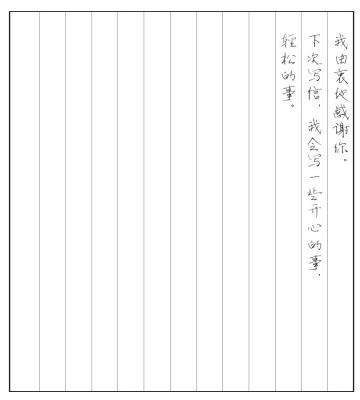 我由衷地感谢你。
下次写信，我会写一些开心的事，
轻松的事。